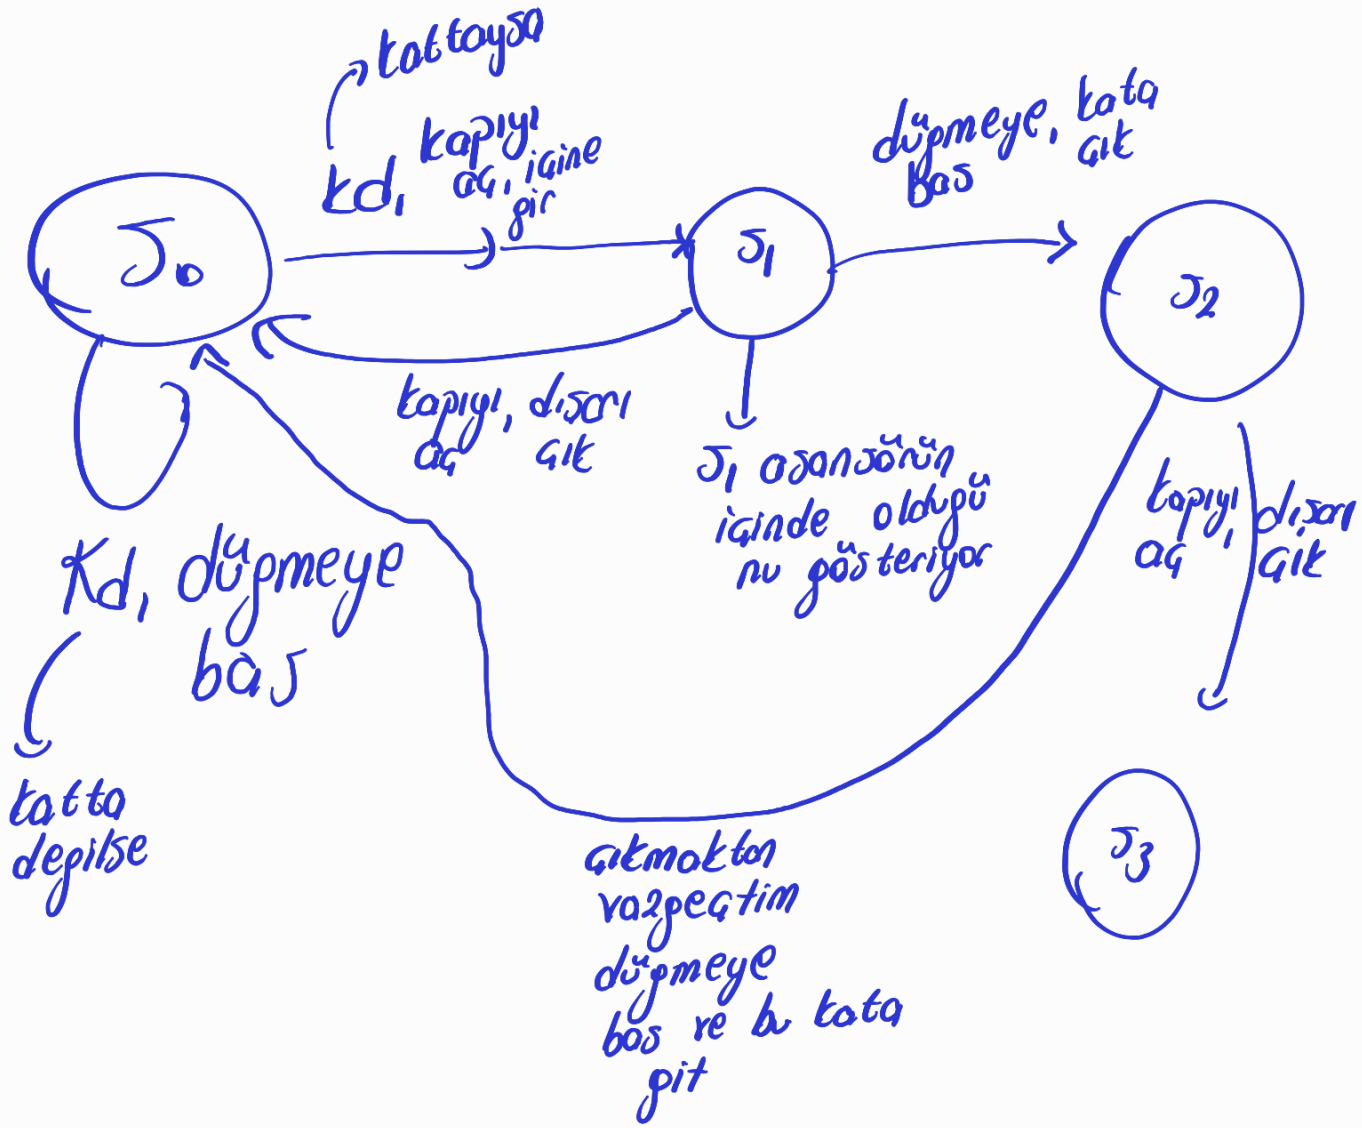 kattaysa
kd, kapıyı
aç, içine
gir
düğmeye, kata
bas çık
S0
S1
S2
kapıyı, dışarı
aç çık
S1 asansörün
içinde olduğu
nu gösteriyor
kapıyı, dışarı
aç çık
Kd, düğmeye
bas
katta
değilse
S3
çıkmaktan
vazgeçtim
düğmeye
bas ve bu kata
git